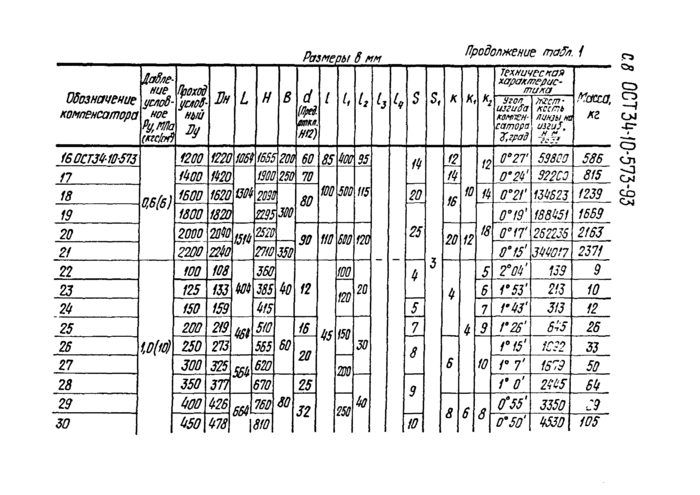 Размеры в мм
Продолжение табл. 1
С.8 ОСТ 34-10-573-93
Обозначение компенсатора | Давление условное Ру, МПа (кгс/см²) | Проход условный Ду | Dн | L | H | B | d (Пред. откл. H12) | l | l₁ | l₂ | l₃ | l₄ | S | S₁ | K | K₁ | K₂ | Техническая характеристика | Масса, кг
Угол изгиба компенсатора γ, град | Жесткость линзы на изгиб,
16 ОСТ34-10-573 | 0,6(6) | 1200 | 1220 | 1064 | 1655 | 200 | 60 | 85 | 400 | 95 | 14 | 3 | 12 | 10 | 12 | 0°27' | 59800 | 586
17 | 1400 | 1420 | 1304 | 1900 | 250 | 70 | 100 | 500 | 115 | 14 | 0°24' | 92200 | 815
18 | 1600 | 1620 | 2090 | 300 | 80 | 20 | 16 | 14 | 0°21' | 134623 | 1239
19 | 1800 | 1820 | 2295 | 25 | 18 | 0°19' | 188451 | 1669
20 | 2000 | 2040 | 1514 | 2520 | 90 | 110 | 600 | 120 | 20 | 12 | 0°17' | 262236 | 2163
21 | 2200 | 2240 | 2710 | 350 | 0°15' | 344017 | 2371
22 | 1,0(10) | 100 | 108 | 404 | 360 | 40 | 12 | 45 | 100 | 20 | 4 | 4 | 4 | 5 | 2°04' | 139 | 9
23 | 125 | 133 | 385 | 120 | 6 | 1°53' | 213 | 10
24 | 150 | 159 | 415 | 5 | 7 | 1°43' | 313 | 12
25 | 200 | 219 | 464 | 510 | 60 | 16 | 150 | 30 | 7 | 9 | 1°26' | 645 | 26
26 | 250 | 273 | 565 | 20 | 8 | 6 | 10 | 1°15' | 33
27 | 300 | 325 | 564 | 620 | 200 | 1°7' | 1679 | 50
28 | 350 | 377 | 670 | 80 | 25 | 9 | 1°0' | 2445 | 64
29 | 400 | 426 | 664 | 760 | 32 | 250 | 40 | 8 | 6 | 8 | 0°55' | 3350
30 | 450 | 478 | 810 | 10 | 0°50' | 4530 | 105